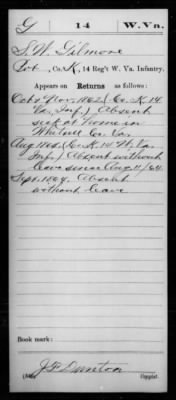 G | 14 | W. Va.
S. W. Gilmore
Pvt., Co. K, 14 Reg't W. Va. Infantry.
Appears on Returns as follows:
Oct & Nov. 1862 (Co. K 14
Va. Inf.) Absent
sick at home in
Co. Va.
Aug 1864 (Co. K 14 W. Va.
Inf.) Absent without
leave since Aug 11/64
Sept. 1864. Absent
without leave
Book mark:
J F Dunton
Copyist.